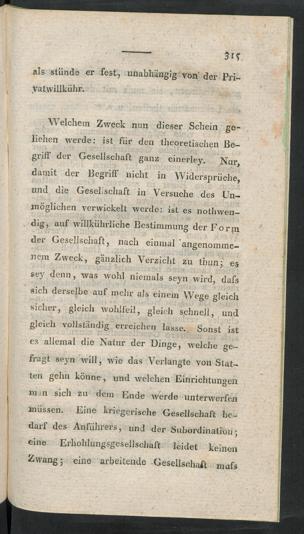 315
als stünde er fest, unabhängig von der Pri-
vatwillkühr.
Welchem Zweck nun dieser Schein ge-
liehen werde: ist für den theoretischen Be-
griff der Gesellschaft ganz einerley. Nur,
damit der Begriff nicht in Widersprüche,
und die Gesellschaft in Versuche des Un-
möglichen verwickelt werde: ist es nothwen-
dig, auf willkührliche Bestimmung der Form
der Gesellschaft, nach einmal angenomme-
nem Zweck, gänzlich Verzicht zu thun; es
sey denn, was wohl niemals seyn wird, daſs
sich derselbe auf mehr als einem Wege gleich
sicher, gleich wohlfeil, gleich schnell, und
gleich vollständig erreichen lasse. Sonst ist
es allemal die Natur der Dinge, welche ge-
fragt seyn will, wie das Verlangte von Stat-
ten gehn könne, und welchen Einrichtungen
man sich zu dem Ende werde unterwerfen
müssen. Eine kriegerische Gesellschaft be-
darf des Anführers, und der Subordination;
eine Erhohlungsgesellschaft leidet keinen
Zwang; eine arbeitende Gesellschaft muſs